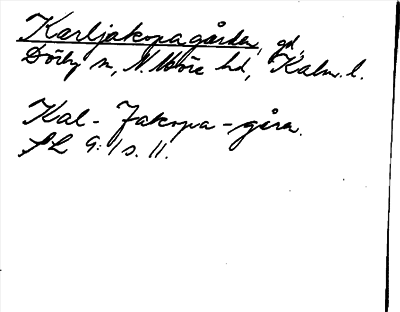 Karljakopagården, gd,
Dörby sn, N. Möre hd, Kalm. l.
Kal-Jakopa-gårn.
SL 9:1 s. 11.